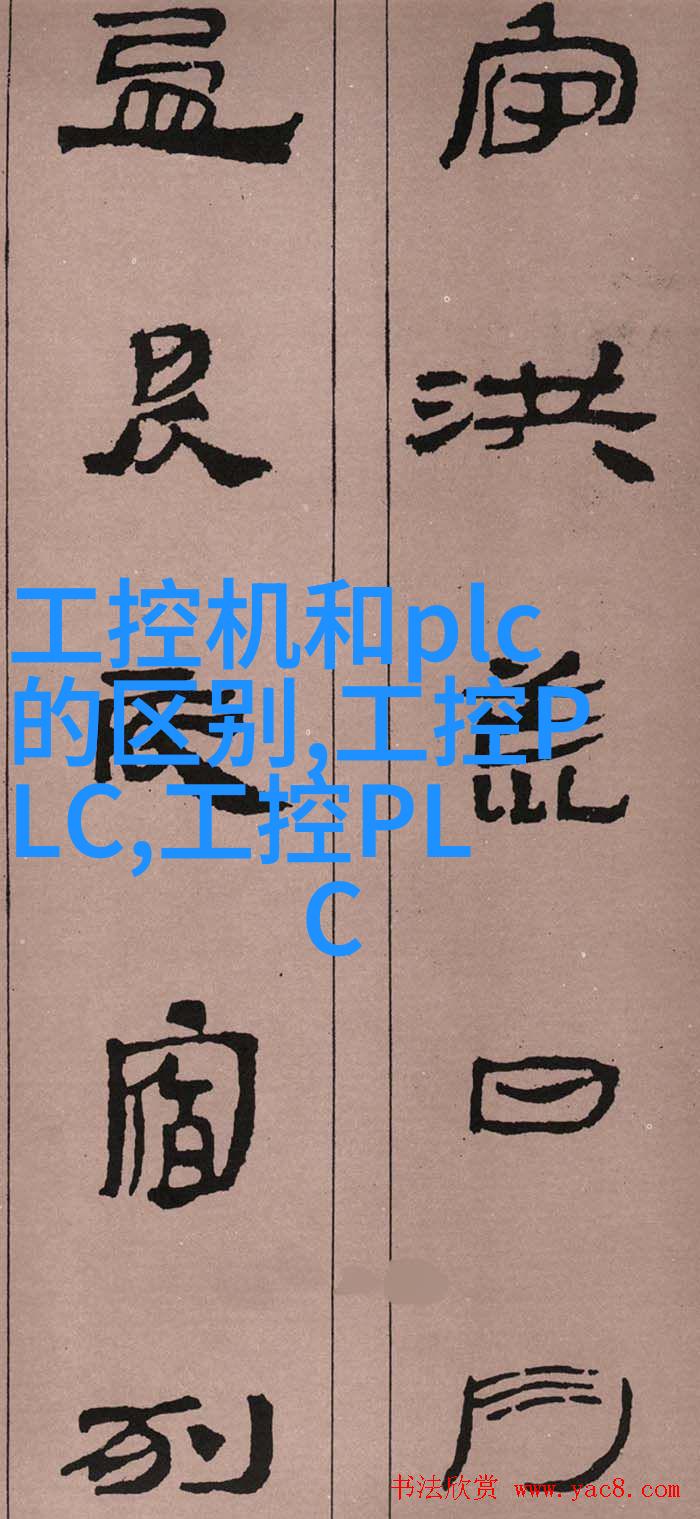 宙洪荒日月
盈昃辰宿列
工控机和plc
的区别,工控P
LC,工控PL
C
书法欣赏 www.yac8.com